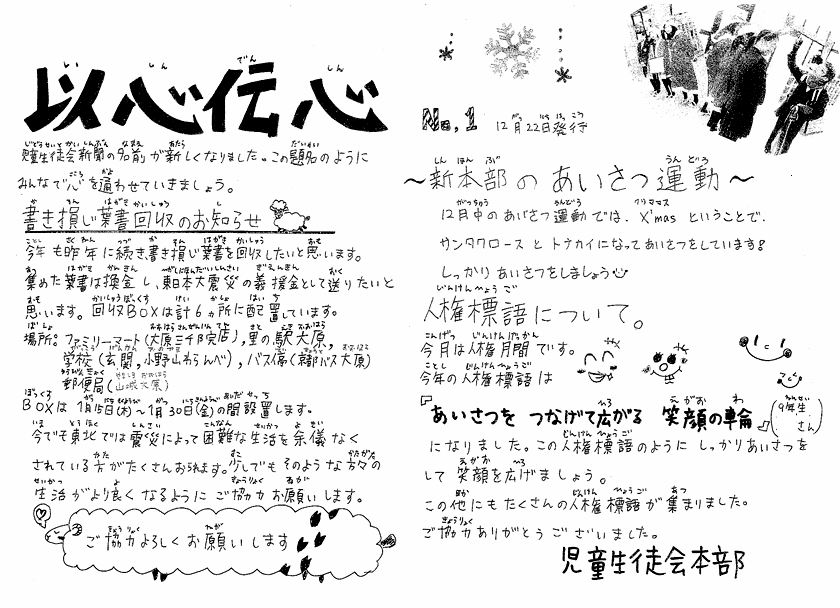 以心伝心
児童生徒会新聞の名前が新しくなりました。この題名のように
みんなで心を通わせていきましょう。
書き損じ葉書回収のお知らせ
今年も昨年に続き書き損じ葉書を回収したいと思います。
集めた葉書は換金し、東日本大震災の義援金として送りたいと
思います。回収BOXは計6ヵ所に配置しています。
場所:ファミリーマート(大原三千院店), 里の駅大原,
学校(玄関, 小野山わらんべ), バス停(京都バス大原)
郵便局(山城大原)
BOXは1月15日(木)~1月30日(金)の間設置します。
今でも東北では震災によって困難な生活を余儀なく
されている方がたくさんおられます。少しでもそのような方々の
生活がより良くなるようにご協力お願いします。
ご協力よろしくお願いします
No,1 12月22日発行
~新本部のあいさつ運動~
12月中のあいさつ運動では、X'masということで、
サンタクロースとトナカイになってあいさつをしています!
しっかりあいさつをしましょう
人権標語について。
今月は人権月間です。
今年の人権標語は
『あいさつを つなげて広がる 笑顔の輪』
(9年生 さん)
になりました。この人権標語のようにしっかりあいさつを
して笑顔を広げましょう。
この他にもたくさんの人権標語が集まりました。
ご協力ありがとうございました。
児童生徒会本部